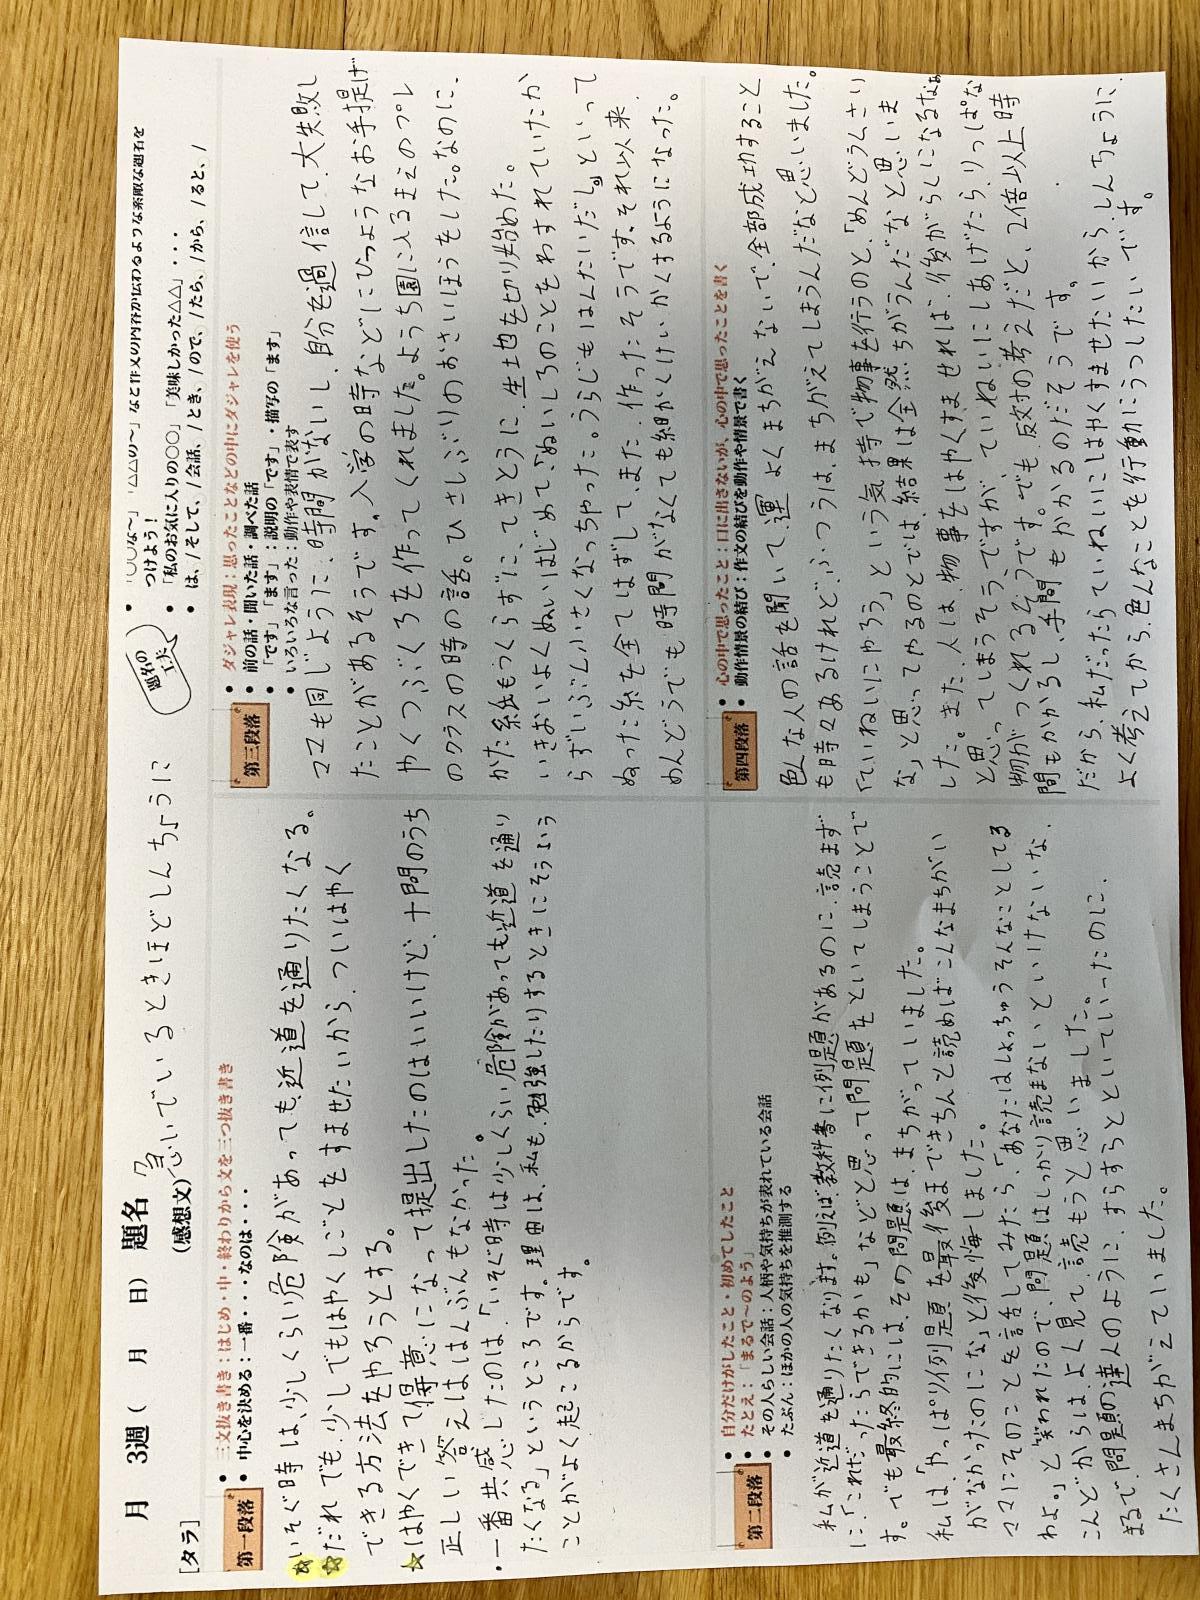 月 3週 ( 月 日) 題名 急いでいるときほどしんちょうに
[タラ] (感想文)
題名の工夫
• 「○○な〜」「△△の〜」など作文の内容が伝わるような素敵な題名をつけよう！
• 「私のお気に入りの○○」「美味しかった△△」・・・
• は、/そして、/会話、/とき、/ので、/たら、/から、/ると、/
第一段落
• 三文抜き書き：はじめ・中・終わりから文を三つ抜き書き
• 中心を決める：一番・・・なのは・・・
☆いそぐ時は、少しくらい危険があっても、近道を通りたくなる。
☆だれでも、少しでもはやくしごとをすませたいから、ついはやく
できる方法をやろうとする。
☆はやくできて得意になって提出したのはいいけど、十問のうち
正しい答えははんぶんもなかった。
・一番共感したのは、「いそぐ時は少しくらい危険があっても近道を通り
たくなる」というところです。理由は、私も、勉強したりするときにそういう
ことがよく起こるからです。
第二段落
• 自分だけがしたこと・初めてしたこと
• たとえ：「まるで〜のよう」
• その人らしい会話：人柄や気持ちが表れている会話
• たぶん：ほかの人の気持ちを推測する
私が近道を通りたくなります。例えば、教科書に例題があるのに、読まず
に、「これだったらできるかも」などと思って問題をといてしまうことで
す。でも最終的には、その問題は、まちがっていました。
私は、「やっぱり例題を最後まできちんと読めばこんなまちがい
がなかったのにな」と後悔しました。
ママにそのことを話してみたら、「あなたはしょっちゅうそんなことしてる
わよ。」と笑われたので、問題はしっかり読まないといけないな、
こんどからは、よく見て、読もうと思いました。
まるで、問題の達人のように、すらすらとといていったのに、
たくさんまちがえていました。
第三段落
• ダジャレ表現：思ったことなどの中にダジャレを使う
• 前の話・聞いた話・調べた話
• 「です」「ます」：説明の「です」・描写の「ます」
• いろいろな言った：動作や表情で表す
ママも同じように、時間がないし、自分を過信して、大失敗し
たことがあるそうです。入学の時などにひつようなお手提げ
やくつぶくろを作ってくれました。ようち園に入るまえのプレ
のクラスの時の話。ひさしぶりのおさいほうをした。なのに、
かた紙もつくらずに、てきとうに、生地を切り始めた。
いきおいよくぬいはじめて、ぬいしろのことをわすれていたか
らずいぶん小さくなっちゃった。うらじもはんたいだし。といって
ぬった糸を全てはずして、また、作ったそうです。それ以来、
めんどうでも、時間がなくても細かくけいかくするようになった。
第四段落
• 心の中で思ったこと：口に出さないが、心の中で思ったことを書く
• 動作情景の結び：作文の結びを動作や情景で書く
色んな人の話を聞いて、運よくまちがえないで、全部成功すること
も時々あるけれど、ふつうは、まちがえてしまうんだなと思いました。
「ていねいにやろう」という気持で物事を行うのと、「めんどうくさい
な」と思ってやるのとでは、結果は全然ちがうんだなと思いま
した。また、人は、物事をはやくすませれば、後がらくになるなぁ
と思ってしまうそうですが、ていねいにしあげたら、りっぱな
物がつくれるそうです。でも、反対の考えだと、2倍以上時
間もかかるし、手間もかかるのだそうです。
だから、私だったらていねいにことはやくすませたいから、しんちょうに
よく考えてから、色んなことを行動にうつしたいです。